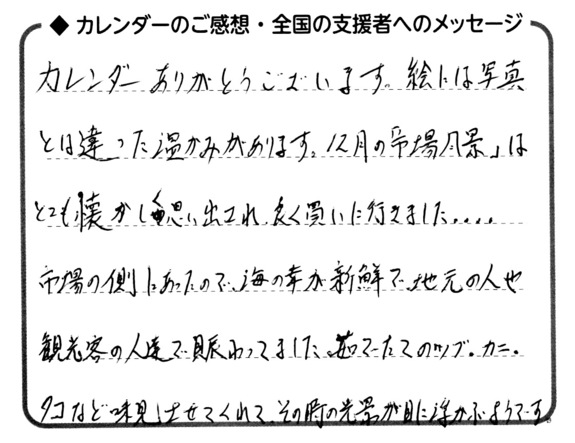 ◆ カレンダーのご感想・全国の支援者へのメッセージ
カレンダーありがとうございます。絵には写真
とは違った温かみがあります。12月の「市場風景」は
とても懐かしく思い出され、良く買いに行きました....
市場の側にあったので、海の幸が新鮮で、地元の人や
観光客の人達で賑わってました。茹でたてのツブ、カニ、
タコなど味見させてくれて、その時の光景が目に浮かぶようです。